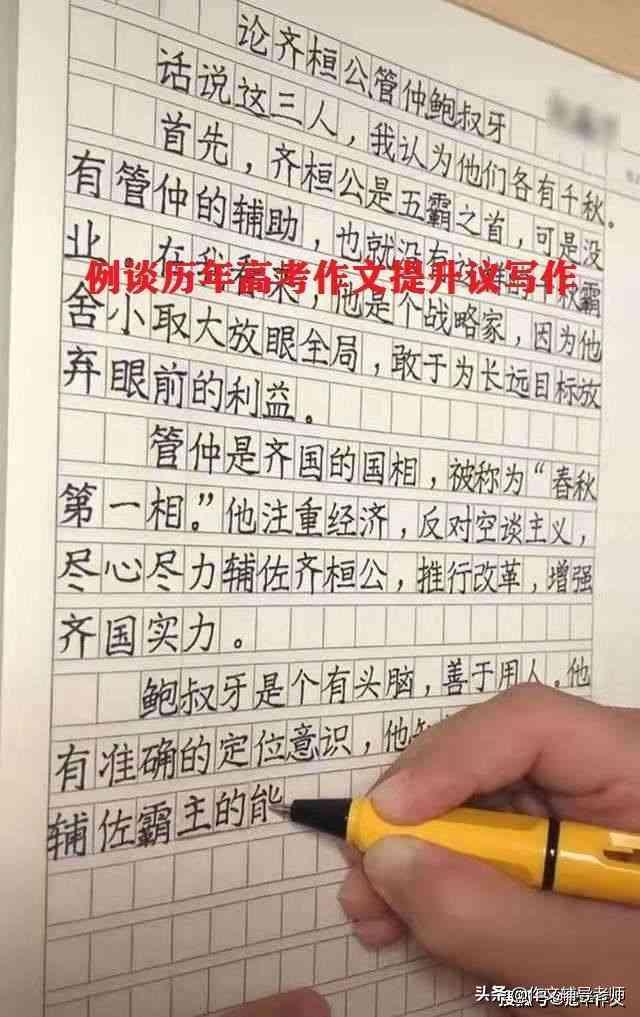 论齐桓公管仲鲍叔牙
话说这三人，我认为他们各有千秋。
首先，齐桓公是五霸之首，可是没
有管仲的辅助，也就没有
业。在我看来，他是个战略家，因为他
例谈历年高考作文提升议写作
舍小取大放眼全局，敢于为长远目标放
弃眼前的利益。
管仲是齐国的国相，被称为“春秋
第一相。”他注重经济，反对空谈主义，
尽心尽力辅佐齐桓公，推行改革，增强
齐国实力。
鲍叔牙是个有头脑，善于用人。他
有准确的定位意识，他
辅佐霸主的能
头条@作文辅导老师
搜狐号@